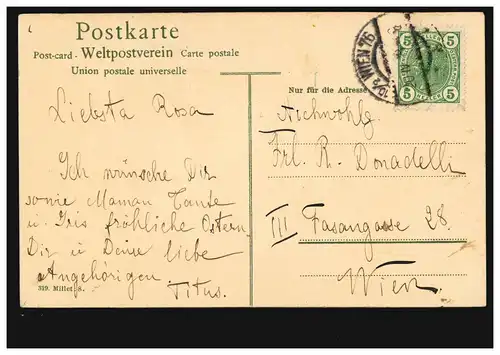 Postkarte
Post-card - Weltpostverein Carte postale
Union postale universelle
Liebsta Rosa
Ich wünsche Dir
sowie Maman Tante
u. Iris fröhliche Ostern
Dir u Deine liebe
Angehörigen
Titus.
319. Millet, s.
WIEN 76
5 5
5 5
HELLER
Nur für die Adresse
Frl. R. Donadelli
III Fasangasse 28.
Wien